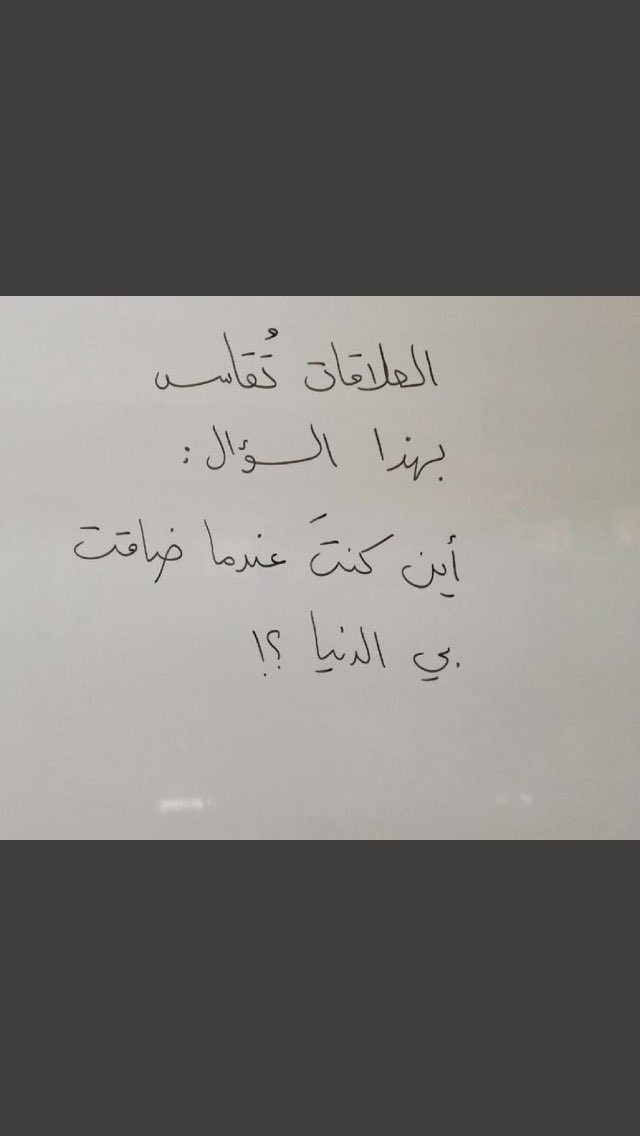 العلاقات تُقاس
بهذا السؤال :
أين كنتَ عندما ضاقت
بي الدنيا ؟!